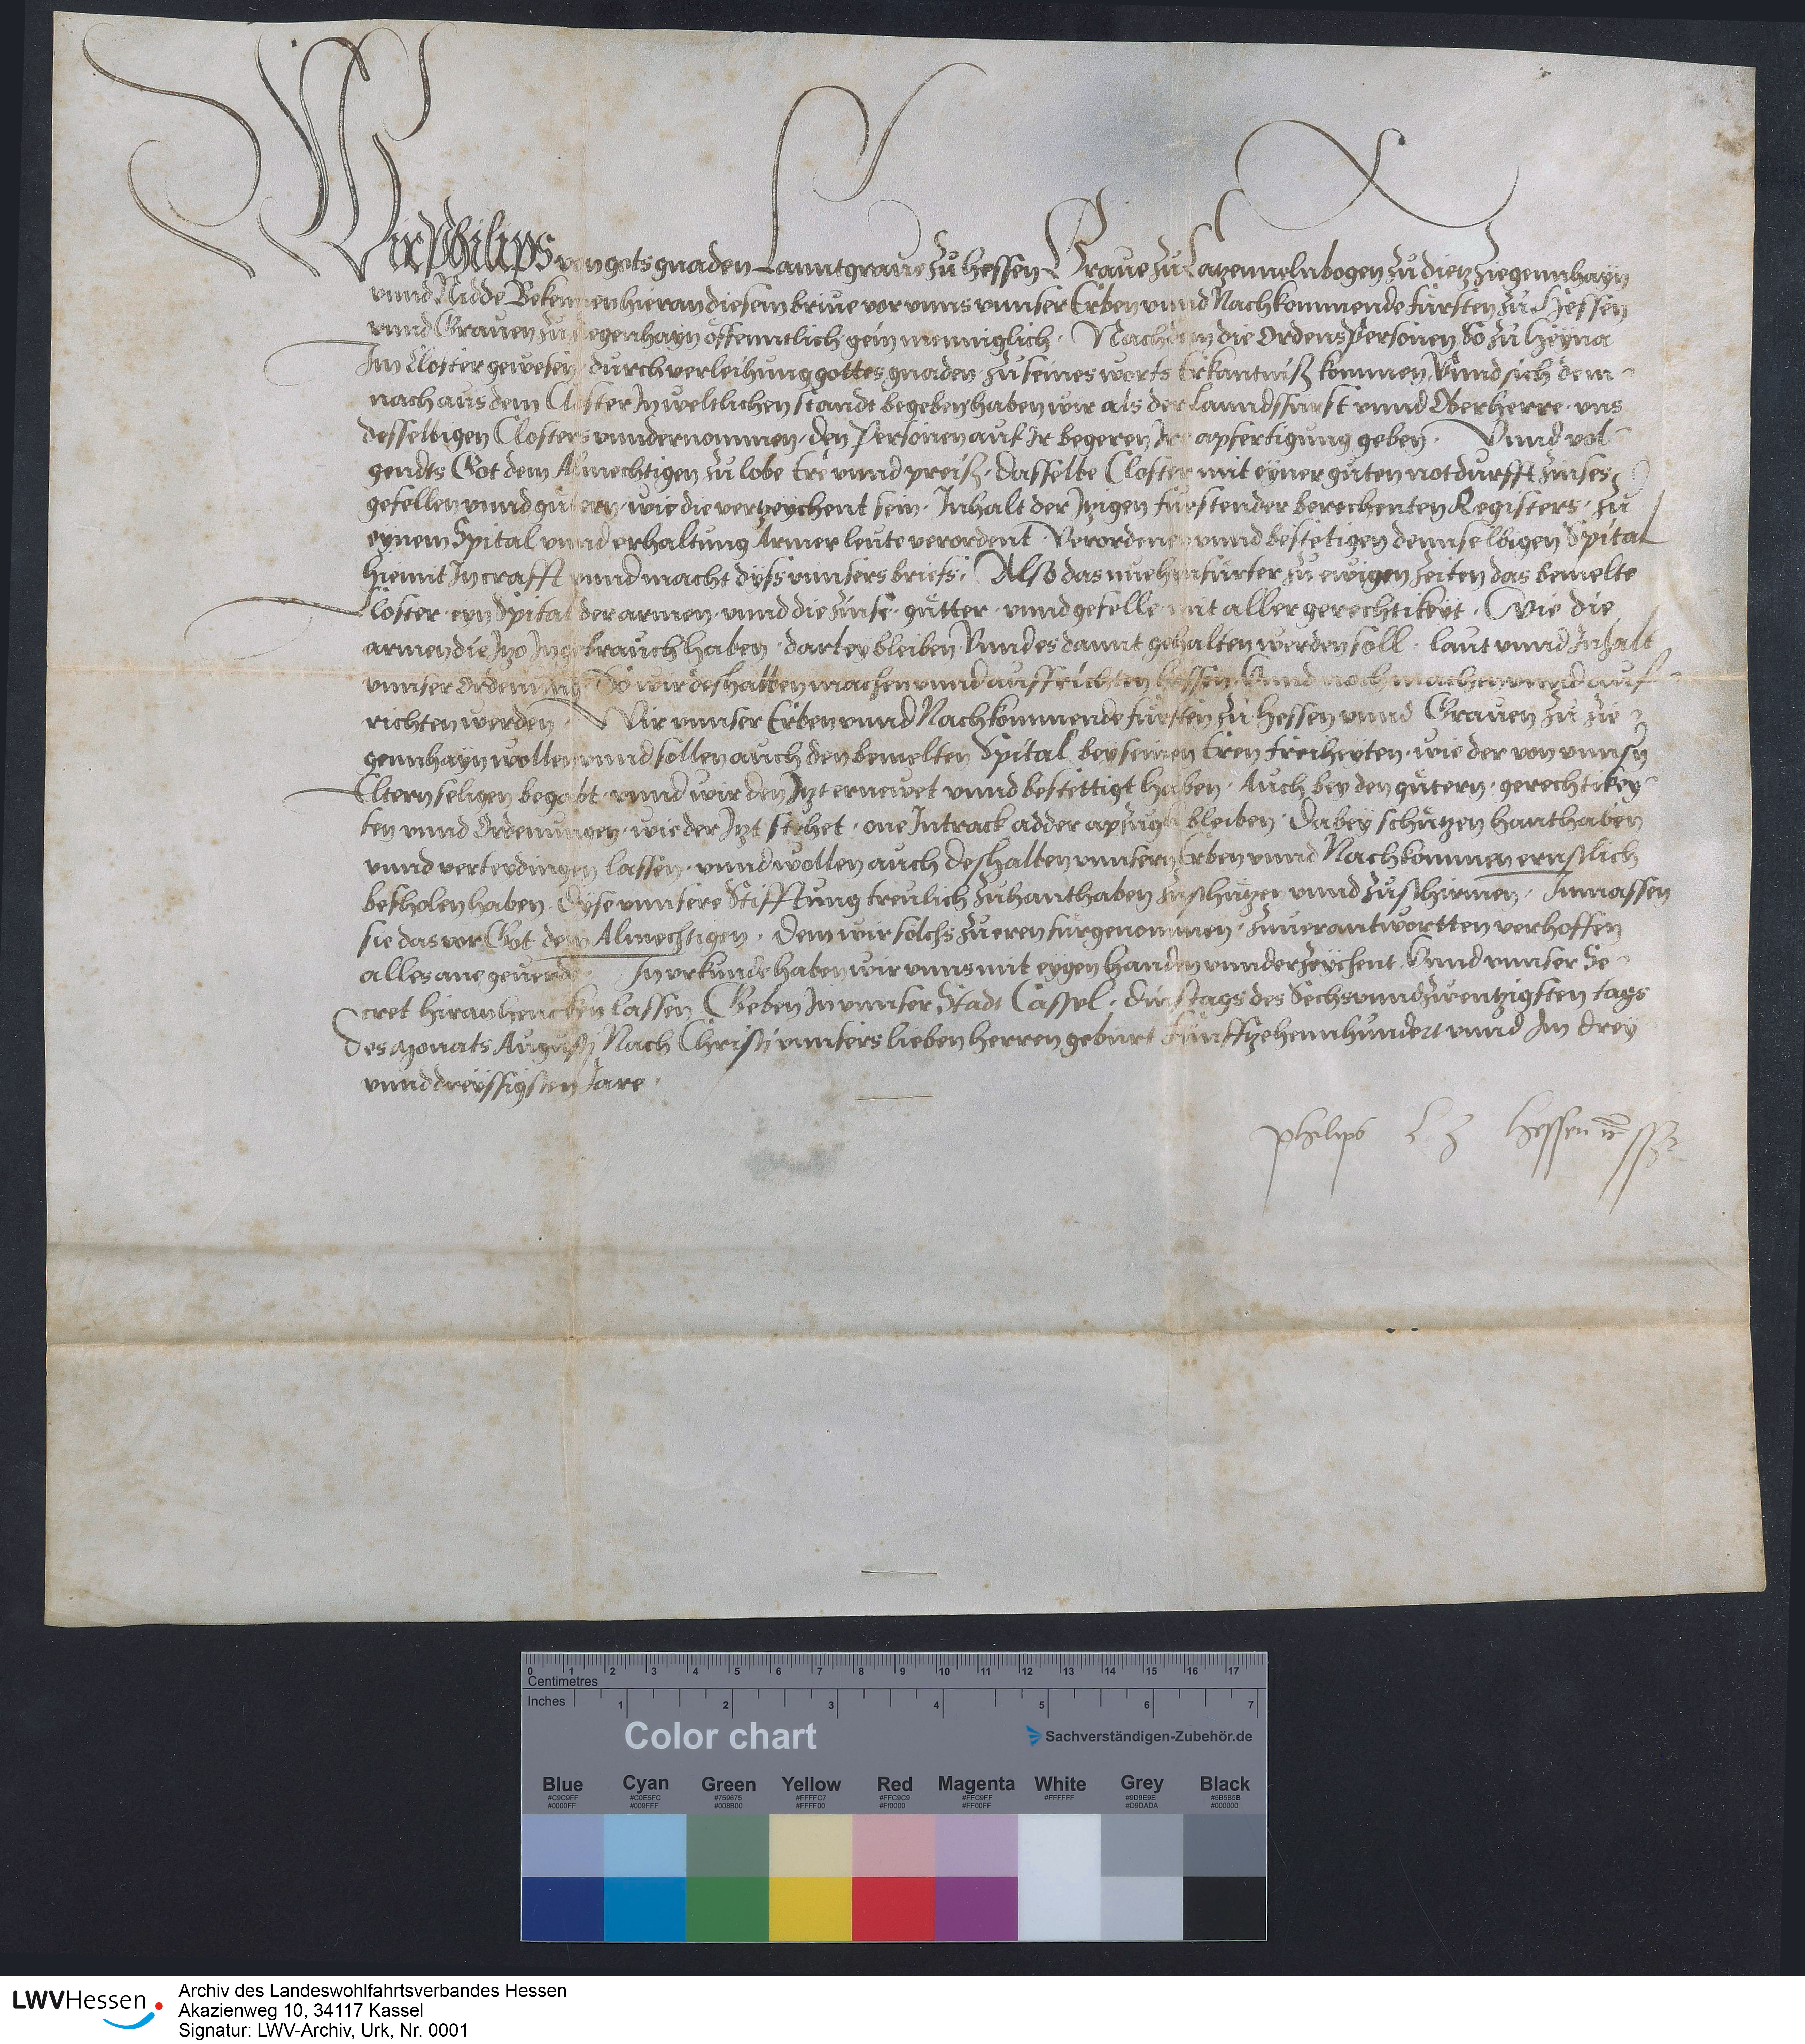 Wir Philips von gots gnaden Lanntgraue zu Hessen Graue zu Catzennelnbogen zu dietz Ziegennhayn
vnnd Nidde Bekennen hieran diesem briue vor vnns vnnser Erben vnnd Nachkommende fursten zu Hessen
vnnd Grauen zu Ziegenhayn offenntlich gein menniglich · Nachdem die Ordens Personen So zu Heyna
Im Closter gewesen durch verleihung gottes gnaden zu seines worts Erkantniß kommen, Vnnd sich dem
nach aus dem Closter In weltlichen standt begeben haben wir als der lanndsfurst vnnd Oberherre vns
desselbigen Closters vnndernommen, den Personen auf Ir begeren Ire apfertigung geben · Vnnd vol
gendts Got dem Almechtigen zu lobe Ere vnnd preiß, dasselbe Closter mit eyner guten notdurfft Zinses
gefellen vnnd gutern, wie die vertzeychent sein, Inhalt der Itzigen furstender berechenten Registers, zu
eynem Spital vnnd erhaltung Armer leute verordent · Verordenen vnnd bestetigen dennselbigen Spital
hiemit In crafft vnnd macht dyss vnnsers briefs, Also das nue hinfurter zu ewigen zeiten das bemelte
Closter eyn Spital der armen, vnnd die Zinse, gutter, vnnd gefelle mit aller gerechtikeyt · Wie die
armen die Itzo In gebrauch haben, darbey bleiben Vnnd es damit gehalten werden soll, laut vnnd Inhalt
vnnser Ordenung So wir deshalben machen vnnd auffrichten lassen Vnnd noch machen vnnd auf
richten werden · Wir vnnser Erben vnnd Nachkommende fursten zu Hessen vnnd Grauen zu Zie
gennhayn wollen vnnd sollen auch den bemelten Spital bey seinen Eren freiheyten, wie der von vnnsern
Eltern seligen begabt, vnnd wir den Itzt ernewet vnnd bestettigt haben, Auch bey den gutern, gerechtikey
ten vnnd Ordenungen, wie der Itzt stehet, one Intrack adder apzugk bleiben, Dabey schutzen hanthaben
vnnd verteydingen lassen, vnnd wollen auch deshalben vnnsern Erben vnnd Nachkommen ernstlich
befholen haben, Dyse vnnsere Stifftung treulich zu hanthaben zu schutzen vnnd zu schirmen · Inmassen
sie das vor Got dem Almechtigen, dem wir solchs zu eren furgenommen, zuuerantwortten verhoffen
alles ane geuerde · In vrkunde haben wir vnns mit eygen handen vnnderzeychent Vnnd vnnser Se
cret hiran hencken lassen Geben In vnnser Stadt Cassel, dinstags des Sechs vnnd zwentzigsten tags
Des Monats Augusti Nach Christi vnnsers lieben herren geburt funfftzehennhundert vnnd Im drey
vnnd dreyssigsten Jare ·
Philips L Z Hessen
0 1 2 3 4 5 6 7 8 9 10 11 12 13 14 15 16 17
Centimetres
Inches 1 2 3 4 5 6 7
Color chart
Sachverständigen-Zubehör.de
Blue Cyan Green Yellow Red Magenta White Grey Black
#C9C9FF #C0E5FC #759675 #FFFFC7 #FFC9C9 #FFC9FF #FFFFFF #9D9E9E #5B5B5B
#0000FF #009FFF #008B00 #FFFF00 #FF0000 #FF00FF #D9DADA #000000
LWVHessen
Archiv des Landeswohlfahrtsverbandes Hessen
Akazienweg 10, 34117 Kassel
Signatur: LWV-Archiv, Urk, Nr. 0001